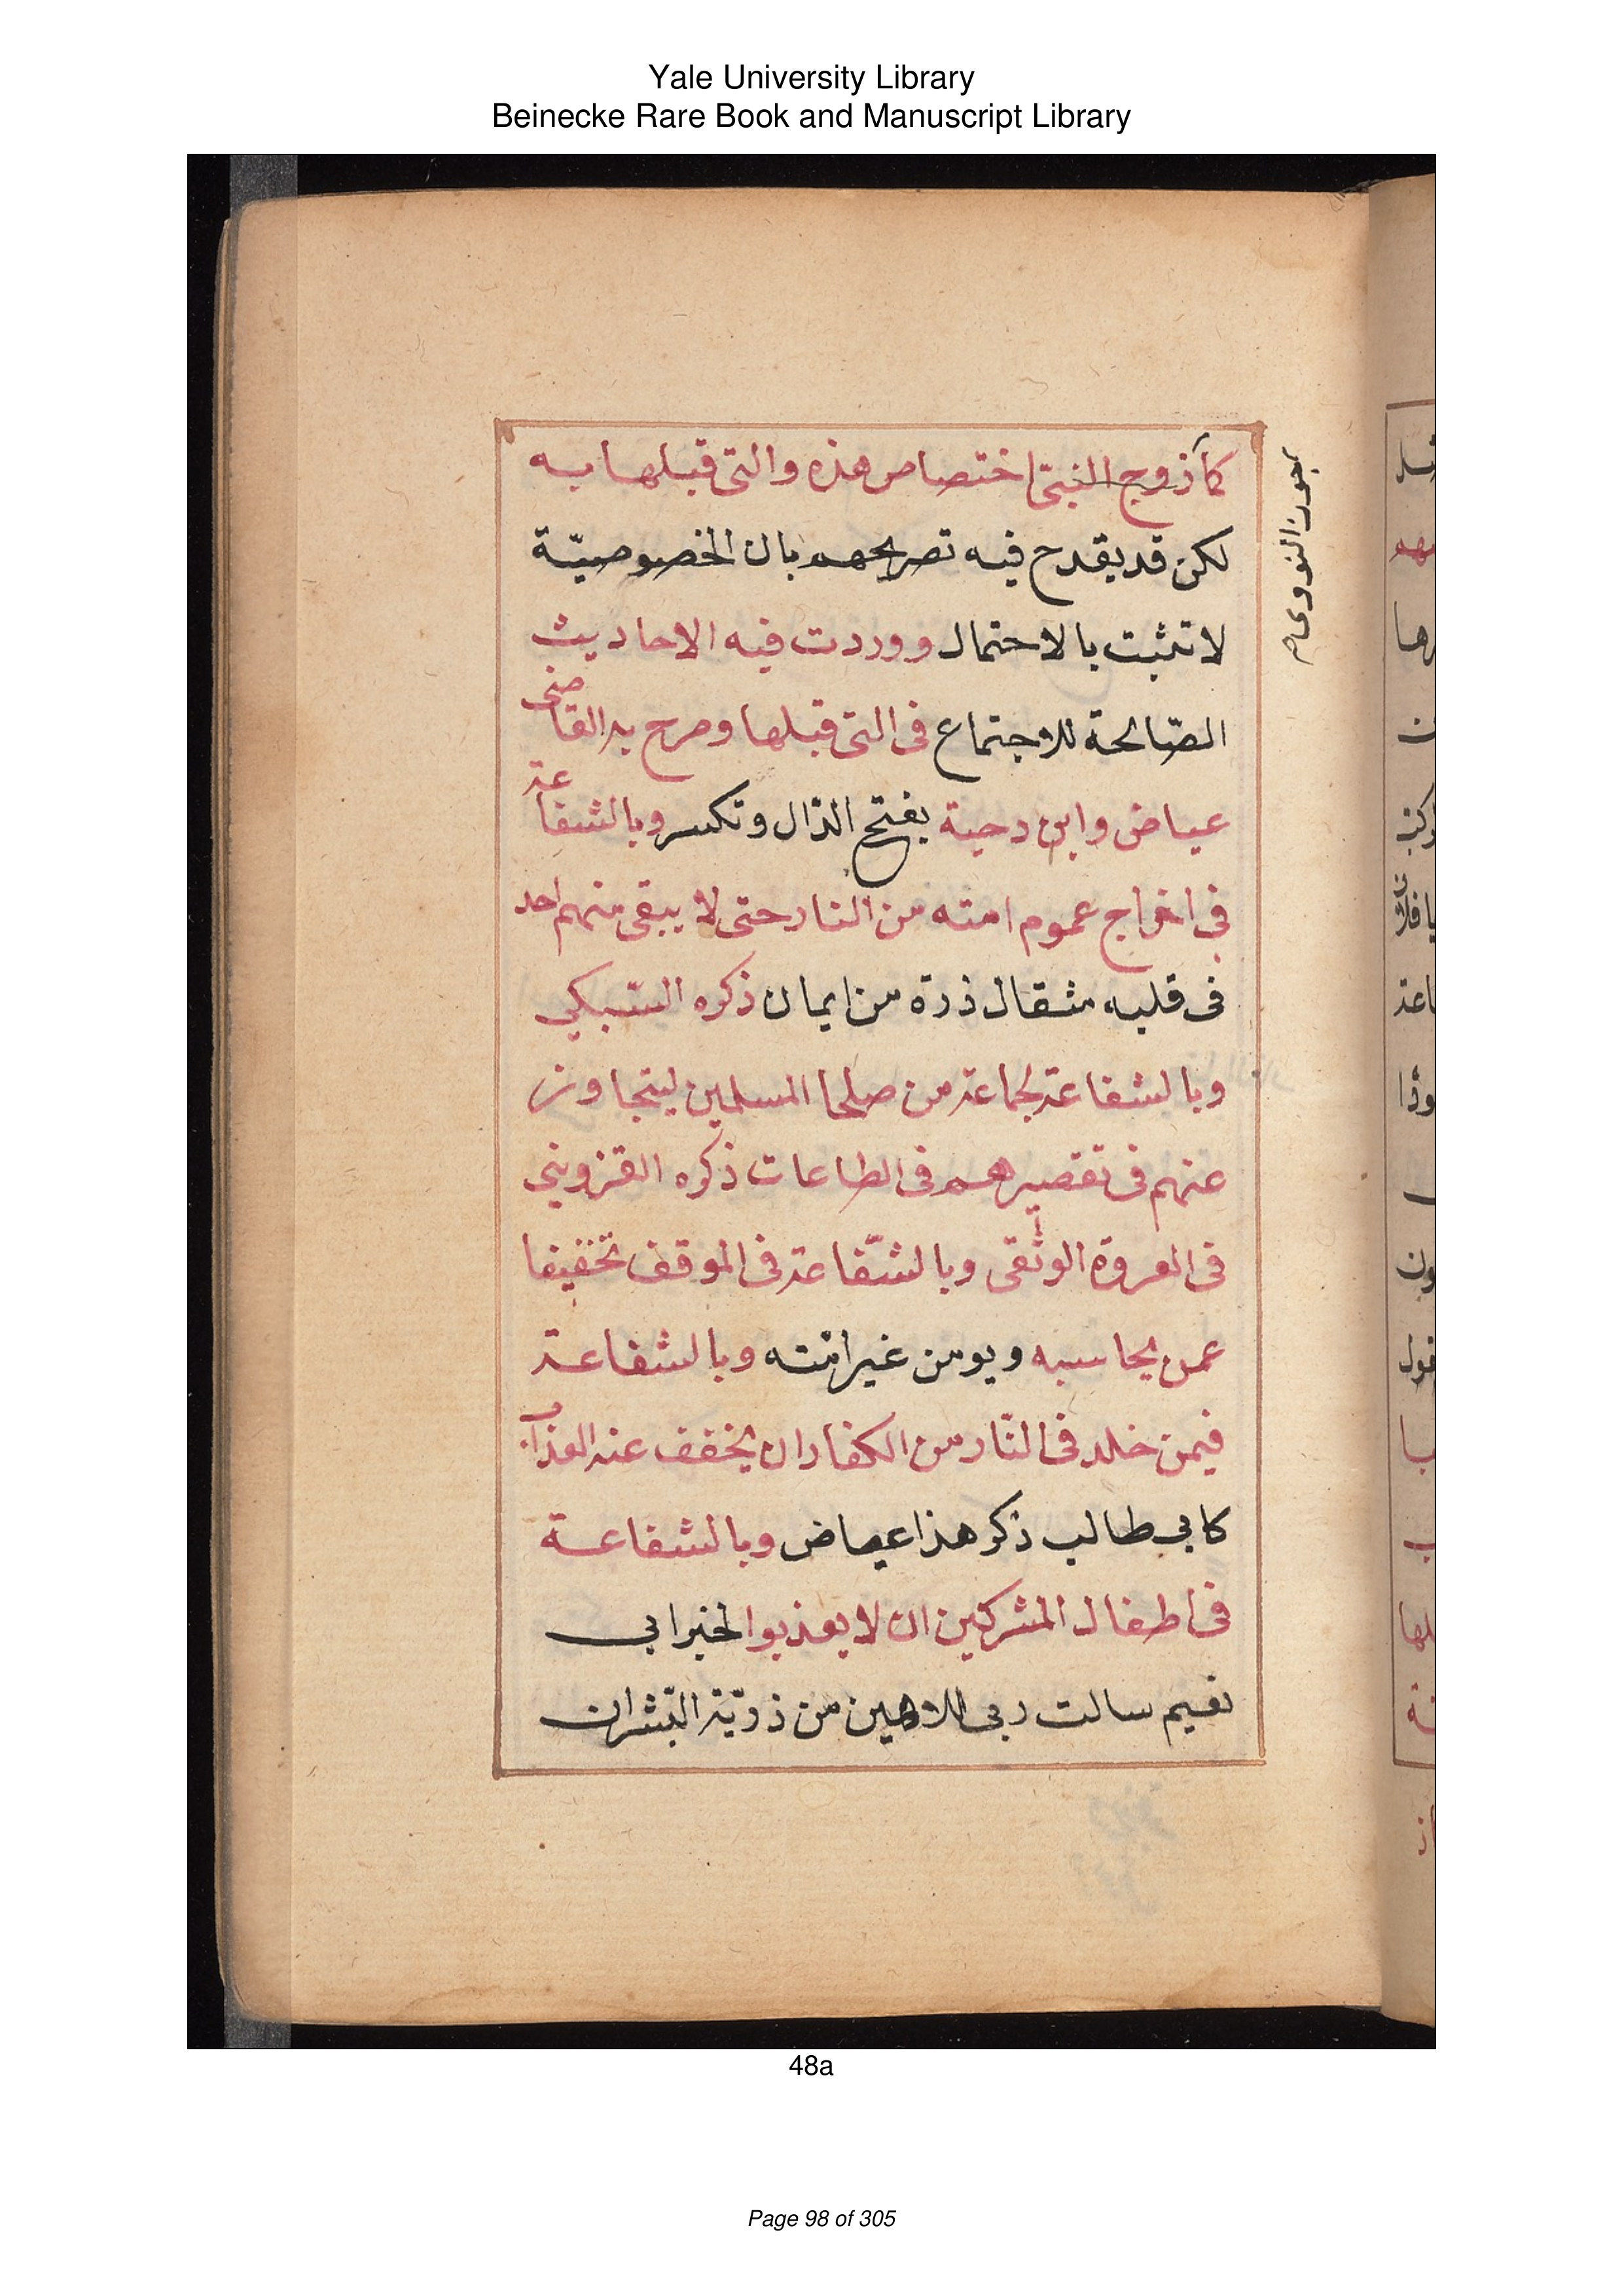 Yale University Library
Beinecke Rare Book and Manuscript Library
كأزوج النبى اختصاص هذه والتى قبلها به
لكن قد يقدح فيه تصريحهم بان الخصوصيّة
لا تثبت بالاحتمال ووردت فيه الاحاديث
الصّالحة للاجتماع فى التى قبلها وصرح به القاضى
عياض وابن دحية بفتح الدّال وتكسر وبالشفاعة
فى اخراج عموم امته من النار حتى لا يبقى منهم احد
فى قلبه مثقال ذرة من ايمان ذكره السّبكي
وبالشفاعة لجماعة من صلحا المسلمين ليتجاوز
عنهم فى تقصيرهم فى الطاعات ذكره القزوينى
فى العروة الوثقى وبالشّفاعة فى الموقف تخفيفا
عمن يحاسبه ويومن غير امّته وبالشفاعة
فيمن خلد فى النّار من الكفار ان يخفف عنه العذاب
كابي طالب ذكر هذا عياض وبالشفاعة
فى اطفال المشركين ان لا يعذبوا لخبر ابي
نعيم سالت ربى اللاهين من ذريّة البّشر ان
جوز النووى
48a
Page 98 of 305